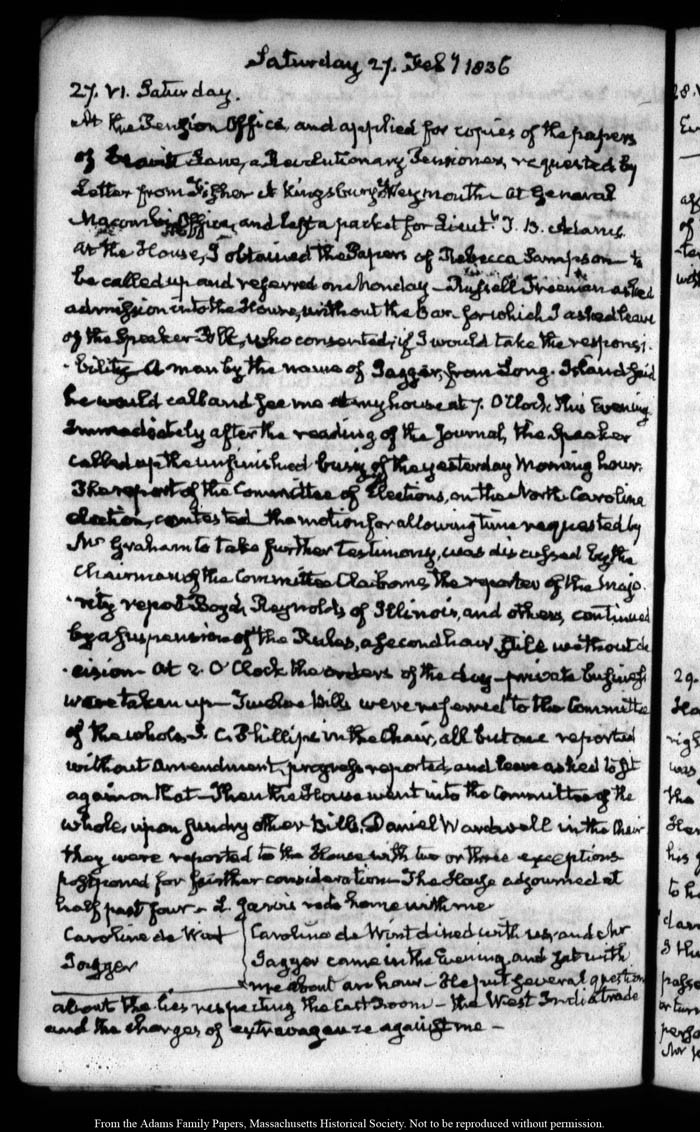 Saturday 27. Feby 1836
27. VI. Saturday.
At the Pension Office, and applied for copies of the papers
of Lane, a Revolutionary Pensioner, requested by
Letter from Fisher A Kingsbury Weymouth. At General
Macomb's Office, and left a packet for Lieutt. T. B. Adams.
At the House, I obtained the Papers of Rebecca Sampson to
be called up and referred on Monday. Russell Freeman asked
admission into the House, without the Bar for which I asked leave
of the Speaker Polk, who consented, if I would take the responsi-
-bility. A man by the name of Jagger, from Long-Island said
he would call and see me at my house at 7. O'Clock this Evening
Immediately after the reading of the Journal, the Speaker
called up the unfinished busig of the yesterday Morning hour.
The report of the Committee of Elections, on the North Carolina
election, contested the motion for allowing time requested by
Mr Graham to take further testimony, was discussed by the
Chairman of the Committee Claiborne, the reporter of the majo-
-rity report Boyd, Reynolds of Illinois, and others, continued
by a suspension of the Rules, a second hour, still without de
-cision. At 2. O'Clock the orders of the day - private business
were taken up - Twelve bills were referred to the Committee
of the whole, S. C. Phillips in the Chair, all but one reported
without amendment, progress reported, and leave asked to sit
again on that. Then the House went into the Committee of the
whole, upon sundry other Bills. Daniel Wardwell in the Chair
they were reported to the House with two or three exceptions
postponed for further consideration. The House adjourned at
half past four. L. Jarvis rode home with me
Caroline de Wint
Jagger
Caroline de Wint dined with us, and Mr
Jagger came in the Evening, and sat with
me about an hour - He put several question
about the lies respecting the East Room - the West India trade
and the charges of extravagance against me -
From the Adams Family Papers, Massachusetts Historical Society. Not to be reproduced without permission.